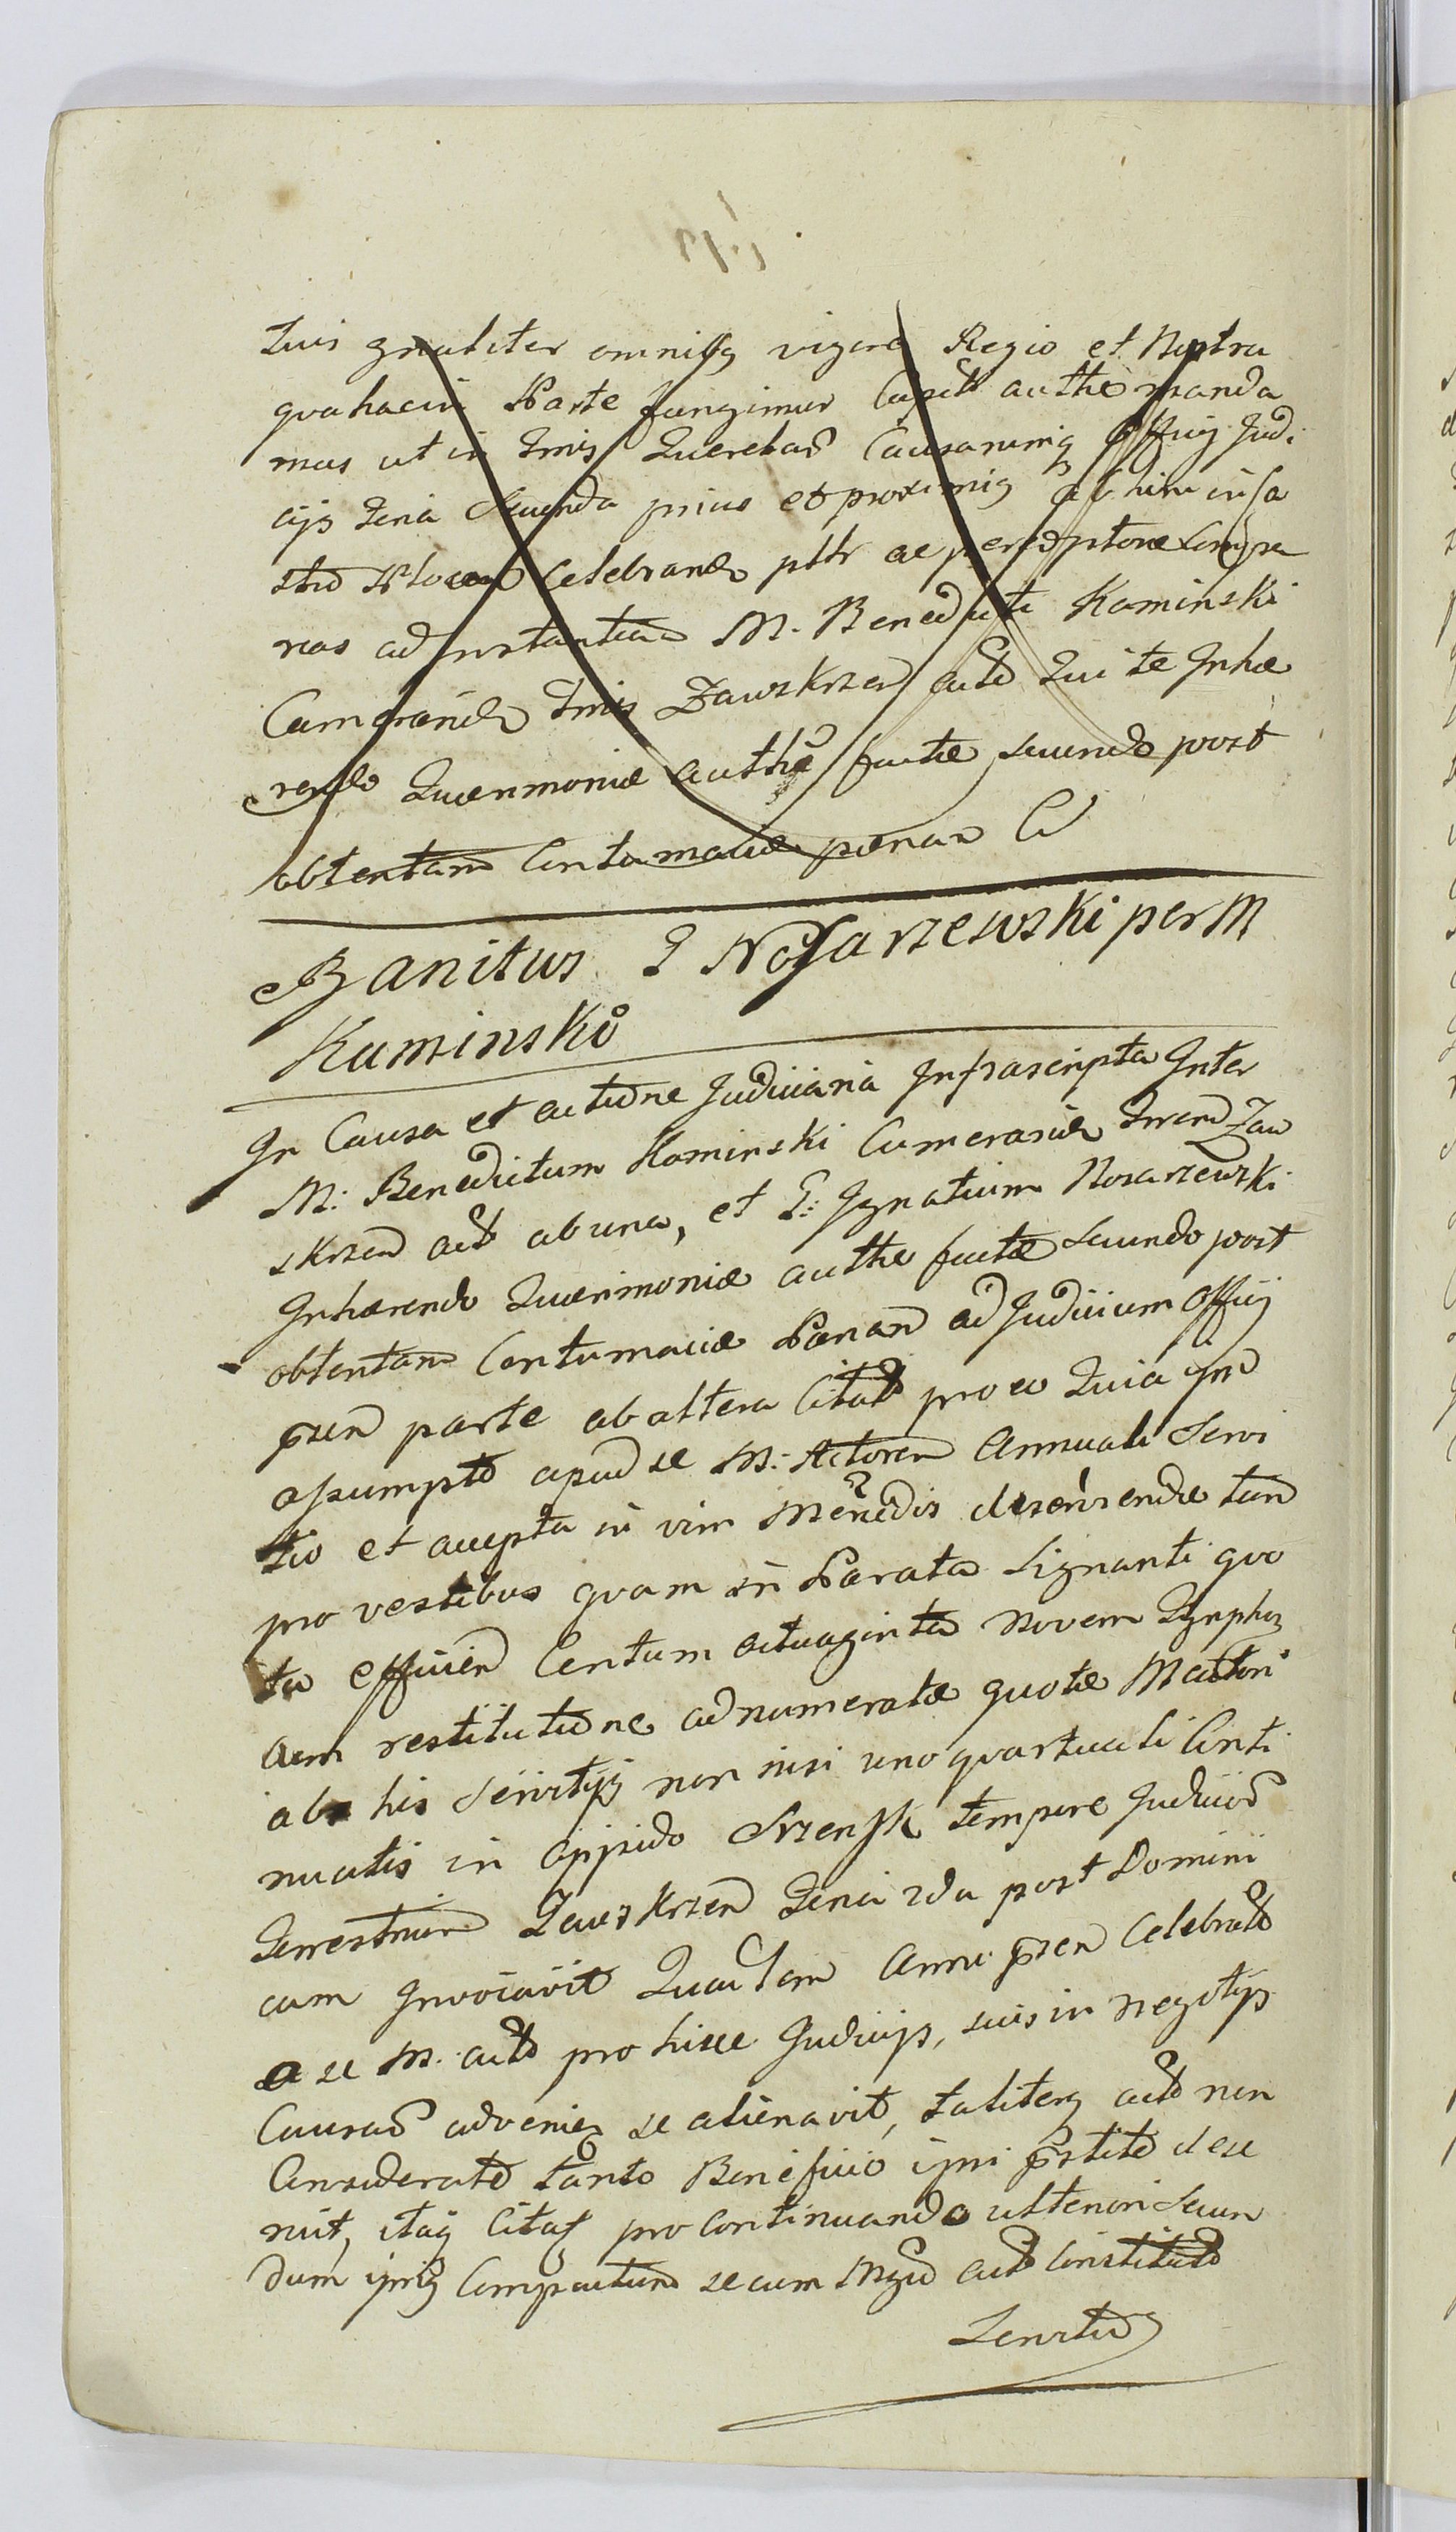 tuis gnaliter omnibq vigore Regio et Nostra
qua hacin Parte fungimur Capit authe manda
mus ut in Tmis Querelaru Causarumq Officij Judi
cijs Feria secunda prius et proxime ab hinc in Ca
stro celebran pttr ac peremptorie Compa
reas ad Instantiam M. Benedicti Kaminski
Camerarid Tmis Zawskrzen acto Qui te Inhæ
rendo Quærimoniæ authe factæ secundo post
obtentam Contumaciæ pænam Ci
Banitus G Nosarzewski per M
Kaminski
In Causa et actione Judiciaria Infrascripta Inter
M: Benedictum Kaminski Camerarid Terren Zaw
skrzen act ab una, et G: Ignatium Nosarzewski
Inhærendo Quærimoniæ authe factæ secundo post
obtentam Contumaciæ Pænam ad Judicium Officij
pñzen parte ab altera Citat pro eo Quia
assumpto apud se M: Actorem Annuali servi
tio et accepta in vim
pro vestibus quam in Parata signanti quo
ta efficien Centum octuaginta novem Tynphos
cum restitutione adnumeratæ quotæ M actori
ab his servitijs non nisi uno quartuali Conti
nuatis in oppido Srzensk tempore Judicioru
Terrestrium Zawskrzen Feria 2da post Domini
cam Invocavit Quadam Anni pñzen celebrat
a se M. acto pro hisce Judicijs, suis in negotijs
Causaru advenien se alienavit, taliterq acto non
Considerato tanto Beneficio ipsi pñstito dese
ruit, itaq Citat pro Continuando ulteriori secun
dum ipsiq Compactum secum Mgco acto Constituto
Servitio